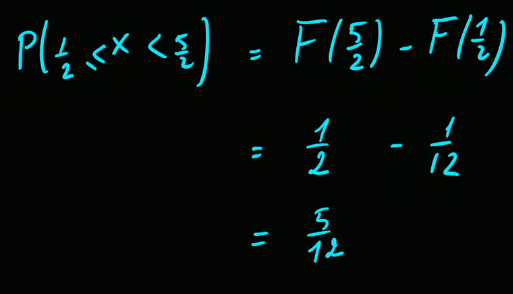 P(1/2 ≤ x < 5/2) = F(5/2) - F(1/2)
= 1/2 - 1/12
= 5/12